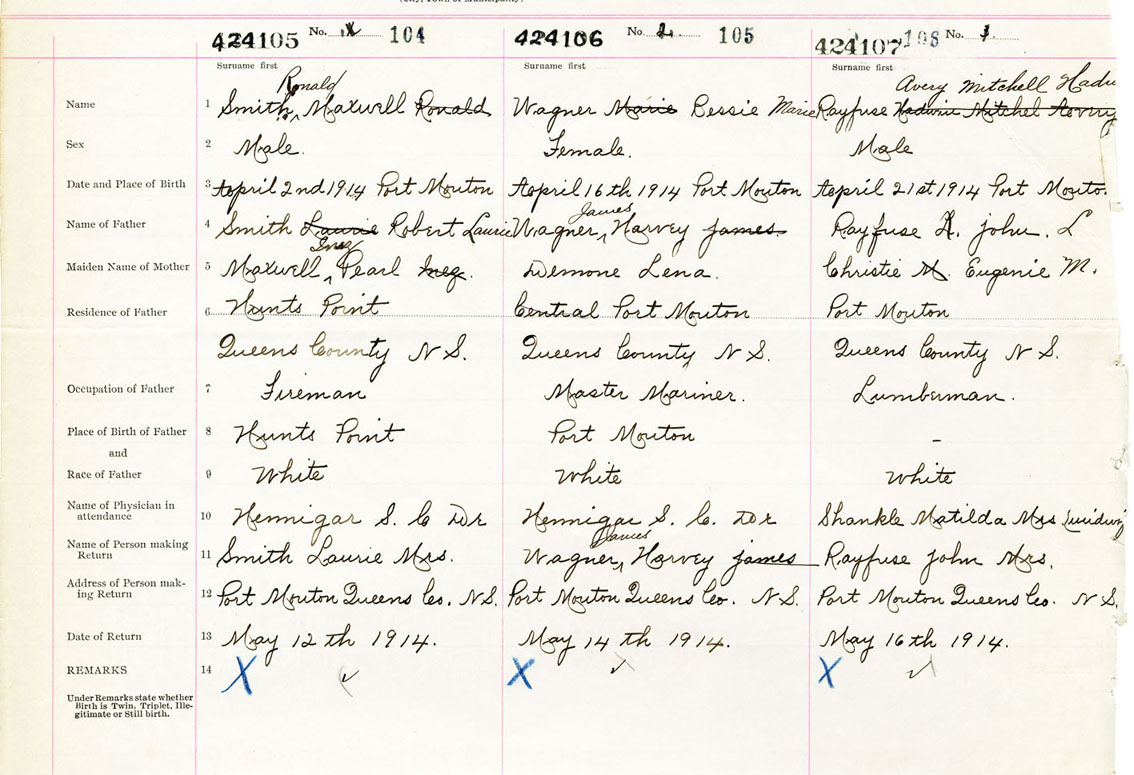 (City, Town or Municipality)
424105 No. 104 424106 No. 2 105 424107 108 No. 3
Surname first Surname first Surname first
Ronald Avery Mitchell
Name 1 Smith, Maxwell Ronald Wagner Marie Bessie Marie Rayfuse Mitchel Avery
Sex 2 Male. Female. Male
Date and Place of Birth 3 April 2nd 1914 Port Mouton April 16th 1914 Port Mouton April 21st 1914 Port Mouto
James
Name of Father 4 Smith Laurie Robert Laurie Wagner Harvey James Rayfuse A. John. L
Inez
Maiden Name of Mother 5 Maxwell Pearl Inez. Demone Lena. Christie M. Eugenie M.
Residence of Father 6 Hunts Point Central Port Mouton Port Mouton
Queens County N S. Queens County N S. Queens County N S.
Occupation of Father 7 Fireman Master Mariner. Lumberman.
Place of Birth of Father 8 Hunts Point Port Mouton -
and
Race of Father 9 White White White
Name of Physician in
attendance 10 Hennigar S. C Dr Hennigar S. C. Dr Shankle Matilda Mrs
James
Name of Person making
Return 11 Smith Laurie Mrs. Wagner Harvey James Rayfuse John Mrs.
Address of Person mak-
ing Return 12 Port Mouton Queens Co. N S. Port Mouton Queens Co. N S. Port Mouton Queens Co. N S.
Date of Return 13 May 12th 1914. May 14th 1914. May 16th 1914.
REMARKS 14 X ✓ X ✓ X ✓
Under Remarks state whether
Birth is Twin, Triplet, Ille-
gitimate or Still birth.